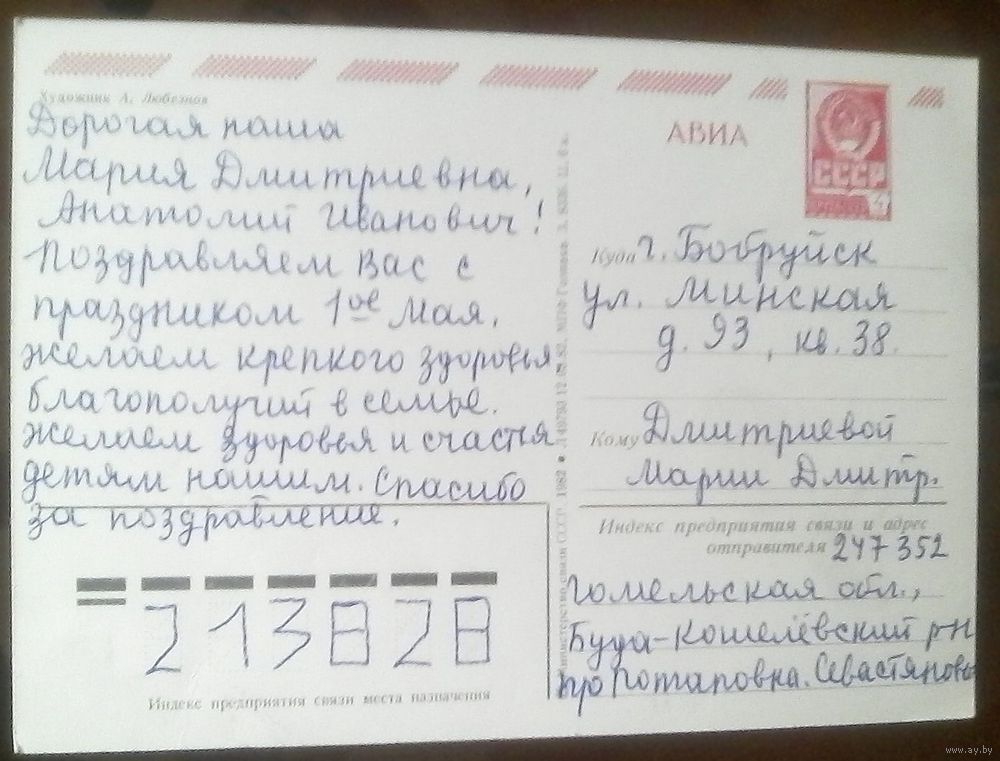 Художник А. Любезнов
Дорогая наша
Мария Дмитриевна,
Анатолий Иванович!
Поздравляем Вас с
праздником 1ое Мая.
желаем крепкого здоровья
благополучий в семье.
желаем здоровья и счастья
детям нашим. Спасибо
за поздравление.
213828
Индекс предприятия связи места назначения
Министерство связи СССР. 1982
АВИА
СССР
4
Куда г. Бобруйск
ул. Минская
д. 93, кв. 38.
Кому Дмитриевой
Марии Дмитр.
Индекс предприятия связи и адрес
отправителя 247352
Гомельская обл.,
Буда-Кошелёвский р-н
Потаповна. Севастяновы
www.ay.by